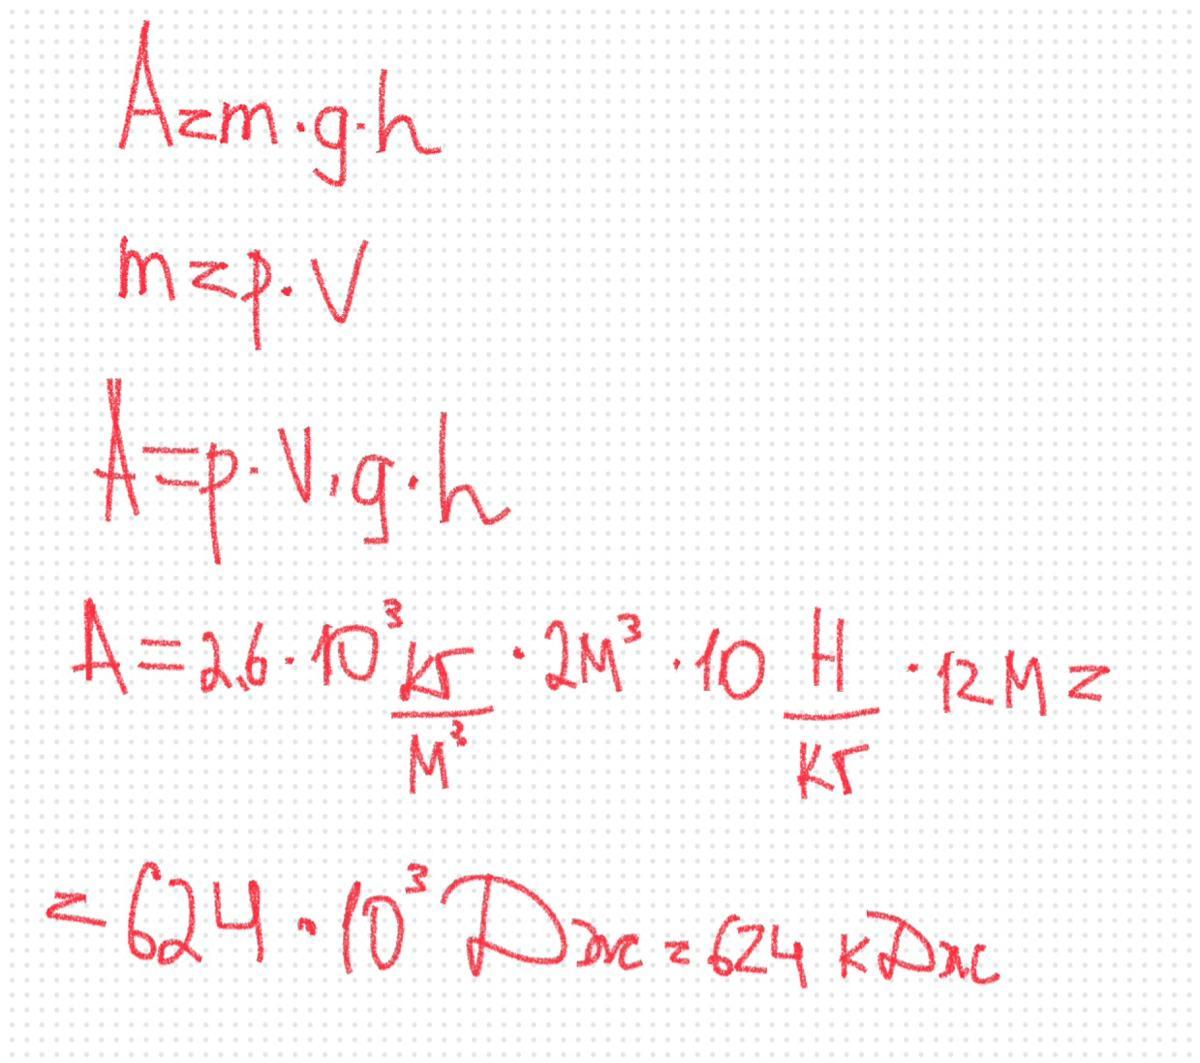 A=m·g·h
m=p·V
A=p·V·g·h
A=2,6·10³ кг/м³ ·2м³ ·10 Н/кг ·12м=
=624·10³ Дж=624 кДж